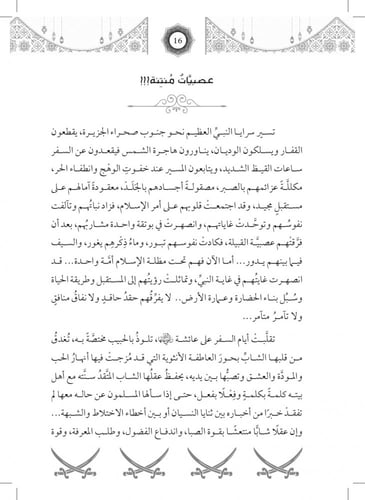 16
عصبيَّاتٌ مُنتِنة!!!
تسير سرايا النبيِّ العظيم نحو جنوب صحراء الجزيرة، يقطعون
القفار ويسلكون الوديان، يناورون هاجرة الشمس فيقعدون عن السفر
ساعات القيظ الشديد، ويتابعون المسير عند خفوت الوهج وانطفاء الحر،
مكلَّلةً عزائمهم بالصبر، مصقولةً أجسادهم بالجَلَد، معقودةً آمالهم على
مستقبلٍ مجيد، وقد اجتمعَتْ قلوبهم على أمر الإسلام، فزاد نباتُهم وتآلفت
نفوسُهم وتوحَّدتْ غاياتهم، وانصهرتْ في بوتقة واحدة مشاربُهم، بعد أن
فرَّقتْهم عصبيَّة القبيلة، فكادتْ نفوسهم تبور، وماءُ ذِكرِهم يغور، والسيف
فيما بينهم يدور... أما الآن فهم تحت مظلة الإسلام أمَّة واحدة... قد
انصهرت غايتُهم في غاية النبيِّ، وتماثلتْ رؤيتُهم إلى المستقبل وطريقة الحياة
وسُبُل بناء الحضارة وعمارة الأرض... لا يفرِّقُهم حقدُ حاقدٍ ولا نفاقُ منافقٍ
ولا تآمرُ متآمر...
تقلَّبتْ أيام السفر على عائشة، تلوذُ بالحبيب مختصَّةً به، تُغدقُ
من قلبها الشابِّ بحورَ العاطفة الأنثوية التي قد مُزجتْ فيها أنهارُ الحب
والمودَّة والعشق وتصبُّها بين يديه، يحفظُ عقلُها الشاب المتَّقدُ سنَّته مع أهل
بيته كلمةً بكلمةٍ وفِعْلًا بفعل، حتى إذا سألها المسلمون عن حاله معها لم
تفقدْ خبرًا من أخباره بين ثنايا النسيان أو بين أخطاء الاختلاط والشبهة...
وإن عقلًا شابًّا منتعشًا بقوة الصبا، واندفاع الفضول، وطلب المعرفة، وقوة